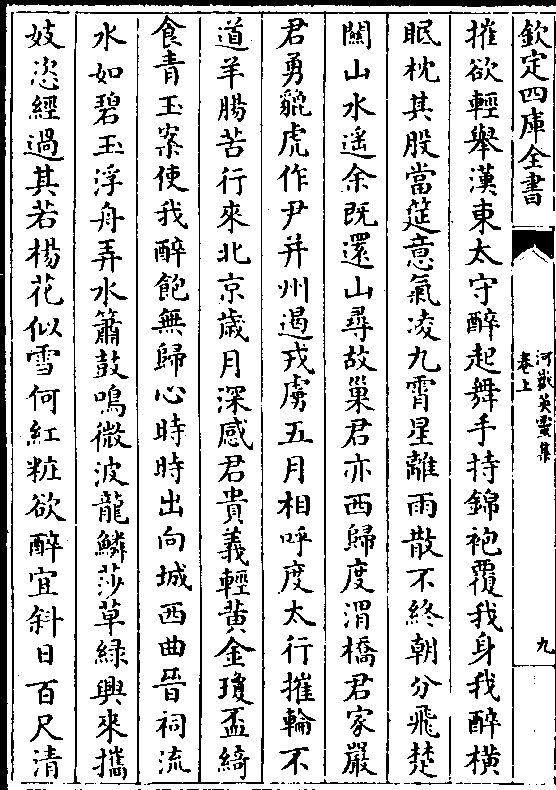 欽定四庫全書
河嶽英靈集
卷上
九
摧欲輕舉漢東太守醉起舞手持錦袍覆我身我醉橫
眠枕其股當筵意氣凌九霄星離雨散不終朝分飛楚
關山水遙余既還山尋故巢君亦西歸度渭橋君家嚴
君勇貔虎作尹并州遏戎虜五月相呼度太行摧輪不
道羊腸苦行來北京歲月深感君貴義輕黃金瓊盃綺
食青玉案使我醉飽無歸心時時出向城西曲晉祠流
水如碧玉浮舟弄水簫鼓鳴微波龍鱗莎草綠興來攜
妓恣經過其若楊花似雪何紅粧欲醉宜斜日百尺清